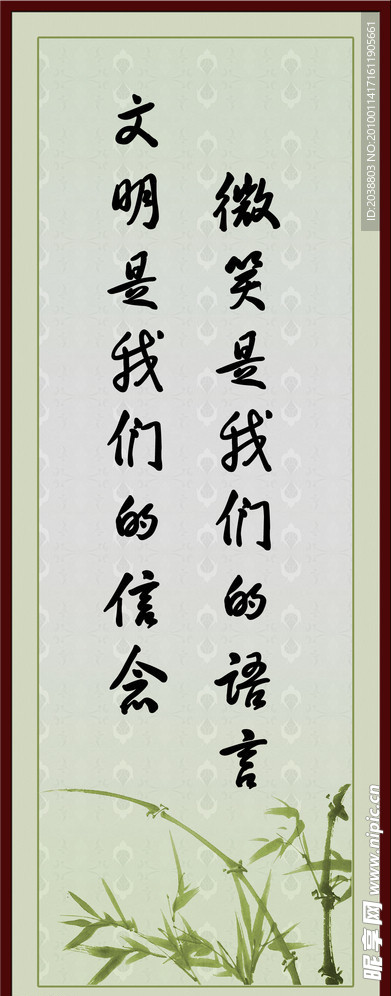 微笑是我们的语言
文明是我们的信念
ID:2038803 NO:20100114171611905661
昵享网 www.nipic.cn